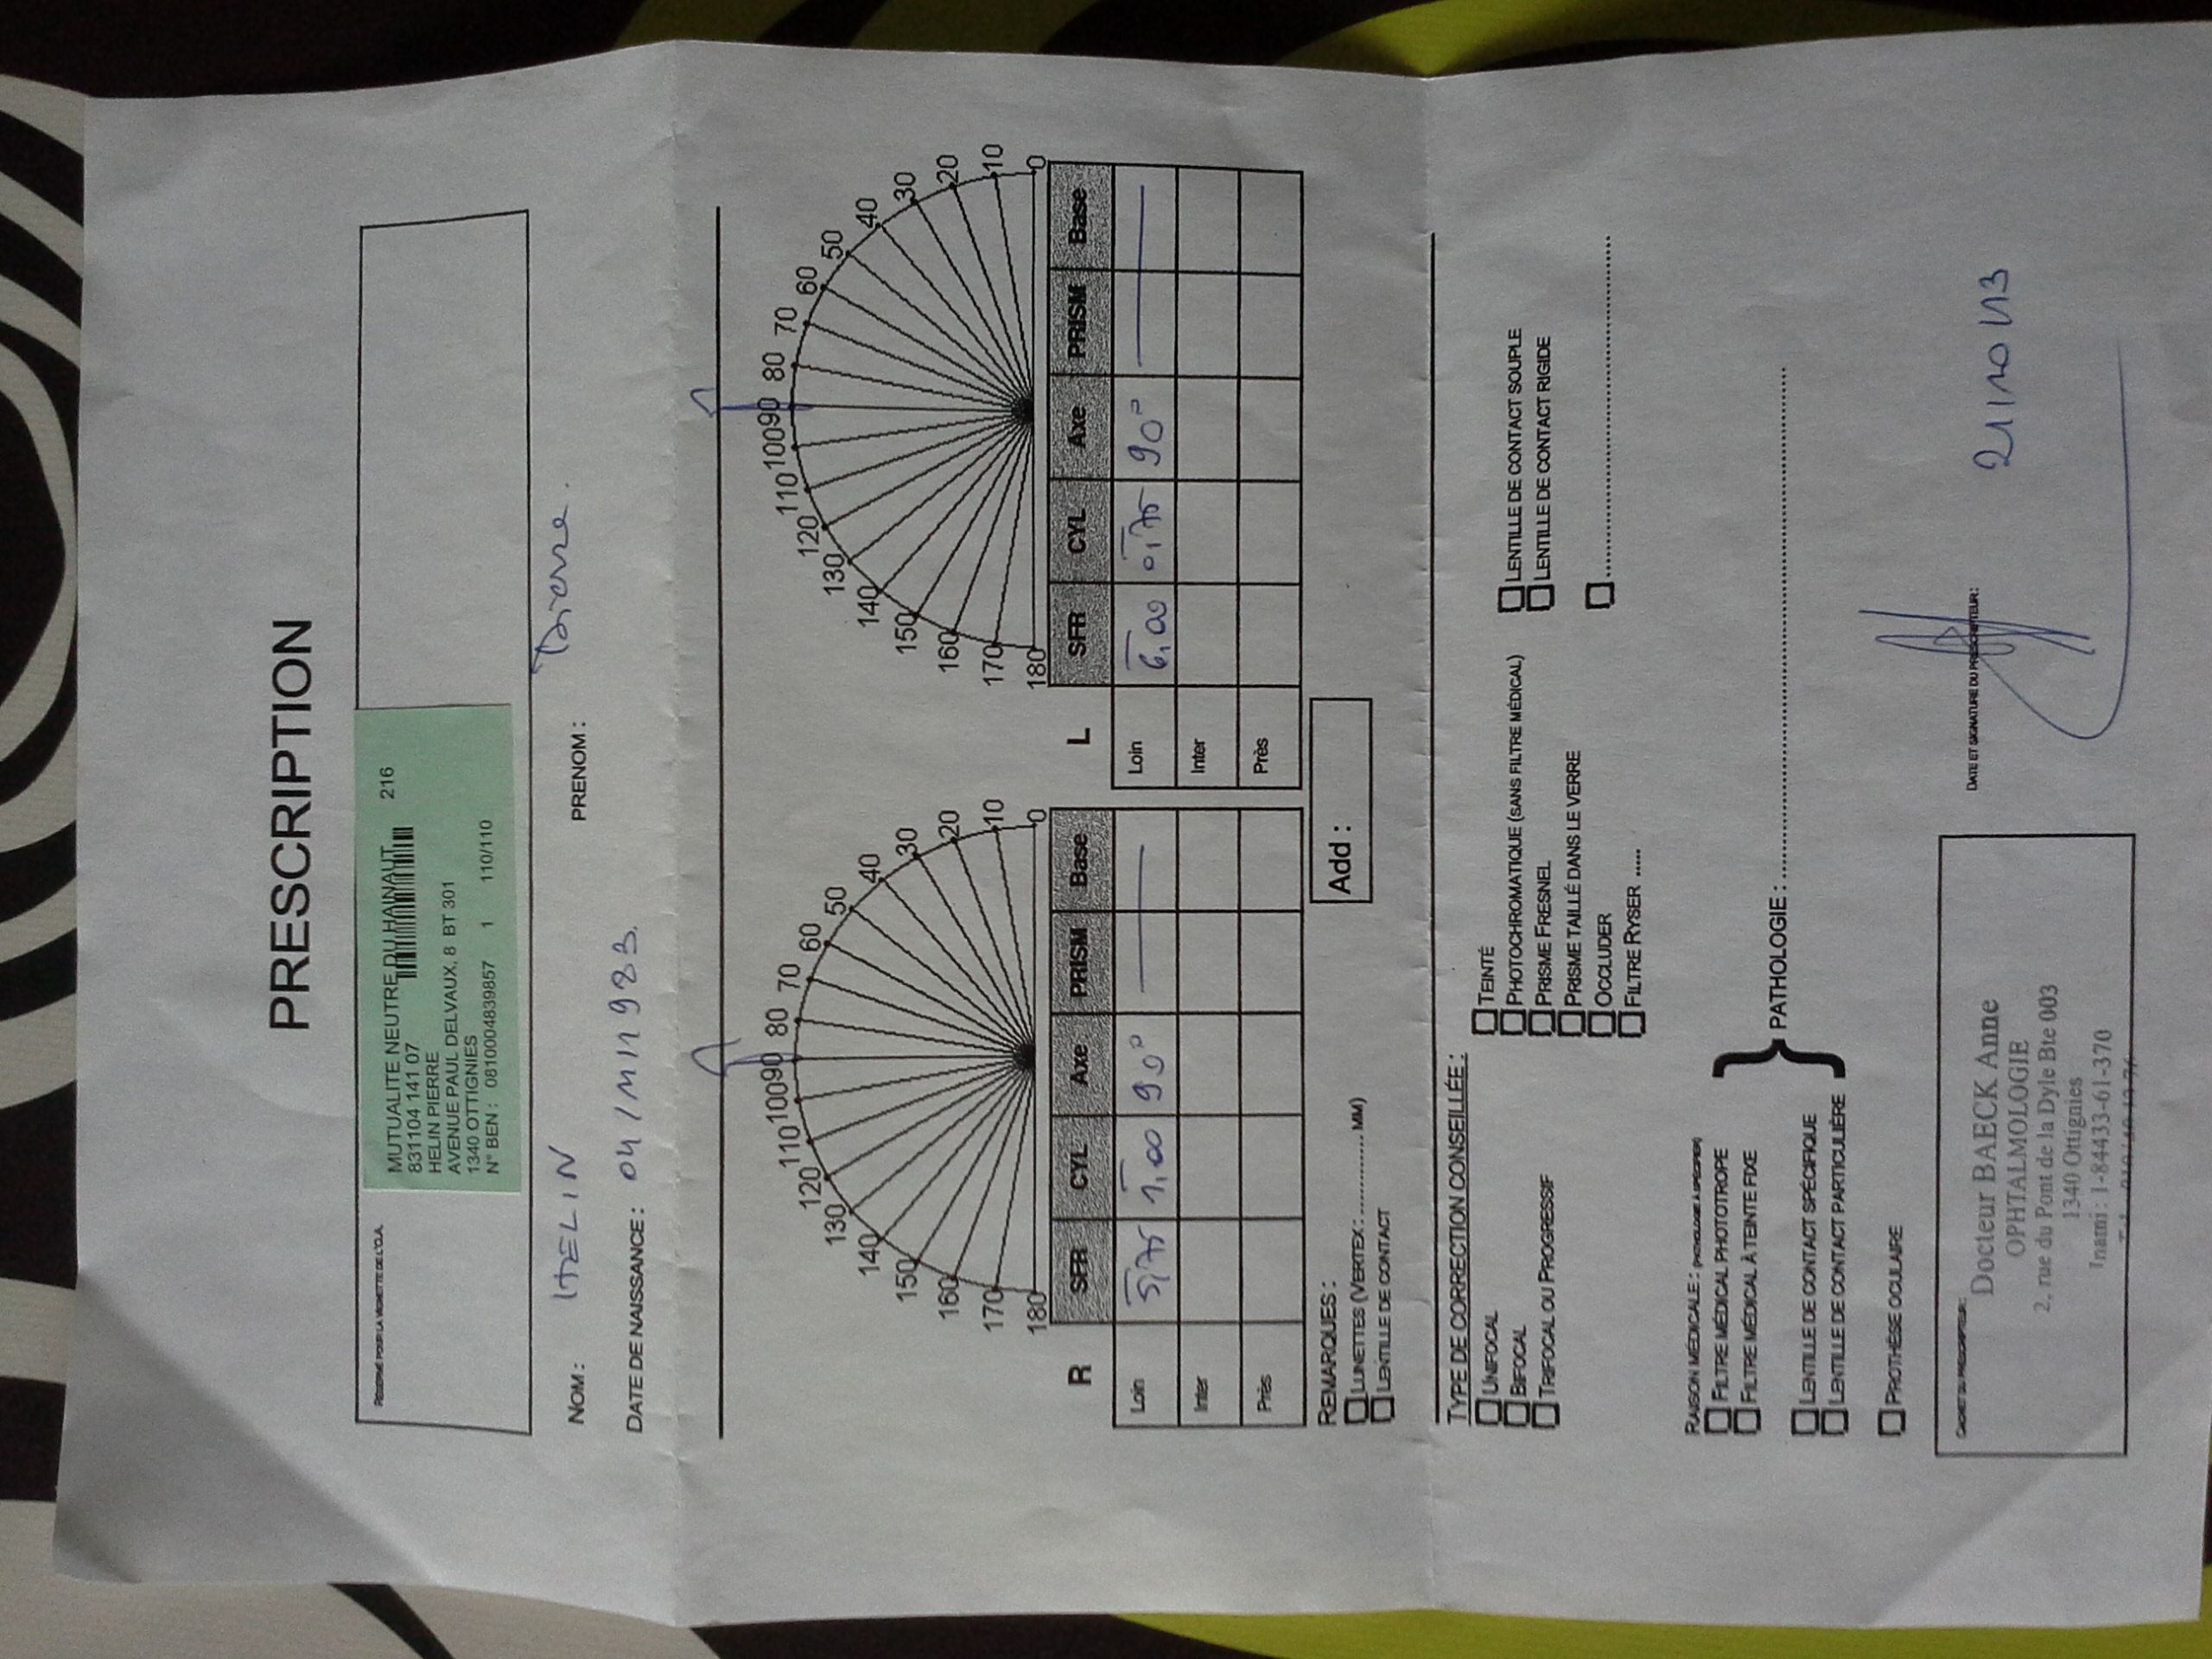 PRESCRIPTION
RÉSERVÉ POUR LA VIGNETTE DE L'O.A.
MUTUALITE NEUTRE DU HAINAUT 216
831104 141 07
HELIN PIERRE
AVENUE PAUL DELVAUX, 8 BT 301
1340 OTTIGNIES
N° BEN : 0810004839857 1 110/110
NOM : HELIN PRENOM : Pierre.
DATE DE NAISSANCE : 04/11/1983.
180 170 160 150 140 130 120 110 100 90 80 70 60 50 40 30 20 10 0
180 170 160 150 140 130 120 110 100 90 80 70 60 50 40 30 20 10 0
R SFR CYL Axe PRISM Base
Loin 5,75 1,00 90°
Inter
Près
L SFR CYL Axe PRISM Base
Loin 6,00 0,75 90°
Inter
Près
REMARQUES : Add :
LUNETTES (VERTEX : ............. MM)
LENTILLE DE CONTACT
TYPE DE CORRECTION CONSEILLÉE :
UNIFOCAL
BIFOCAL
TRIFOCAL OU PROGRESSIF
TEINTÉ
PHOTOCHROMATIQUE (SANS FILTRE MÉDICAL)
PRISME FRESNEL
PRISME TAILLÉ DANS LE VERRE
OCCLUDER
FILTRE RYSER .....
LENTILLE DE CONTACT SOUPLE
LENTILLE DE CONTACT RIGIDE
RAISON MÉDICALE : (PATHOLOGIE À SPÉCIFIER)
FILTRE MÉDICAL PHOTOTROPE
FILTRE MÉDICAL À TEINTE FIXE
LENTILLE DE CONTACT SPÉCIFIQUE
LENTILLE DE CONTACT PARTICULIÈRE
PATHOLOGIE :
PROTHÈSE OCULAIRE
CACHET DU PRESCRIPTEUR :
Docteur BAECK Anne
OPHTALMOLOGIE
2, rue du Pont de la Dyle Bte 003
1340 Ottignies
Inami : 1-84433-61-370
DATE ET SIGNATURE DU PRESCRIPTEUR :
21/10/13